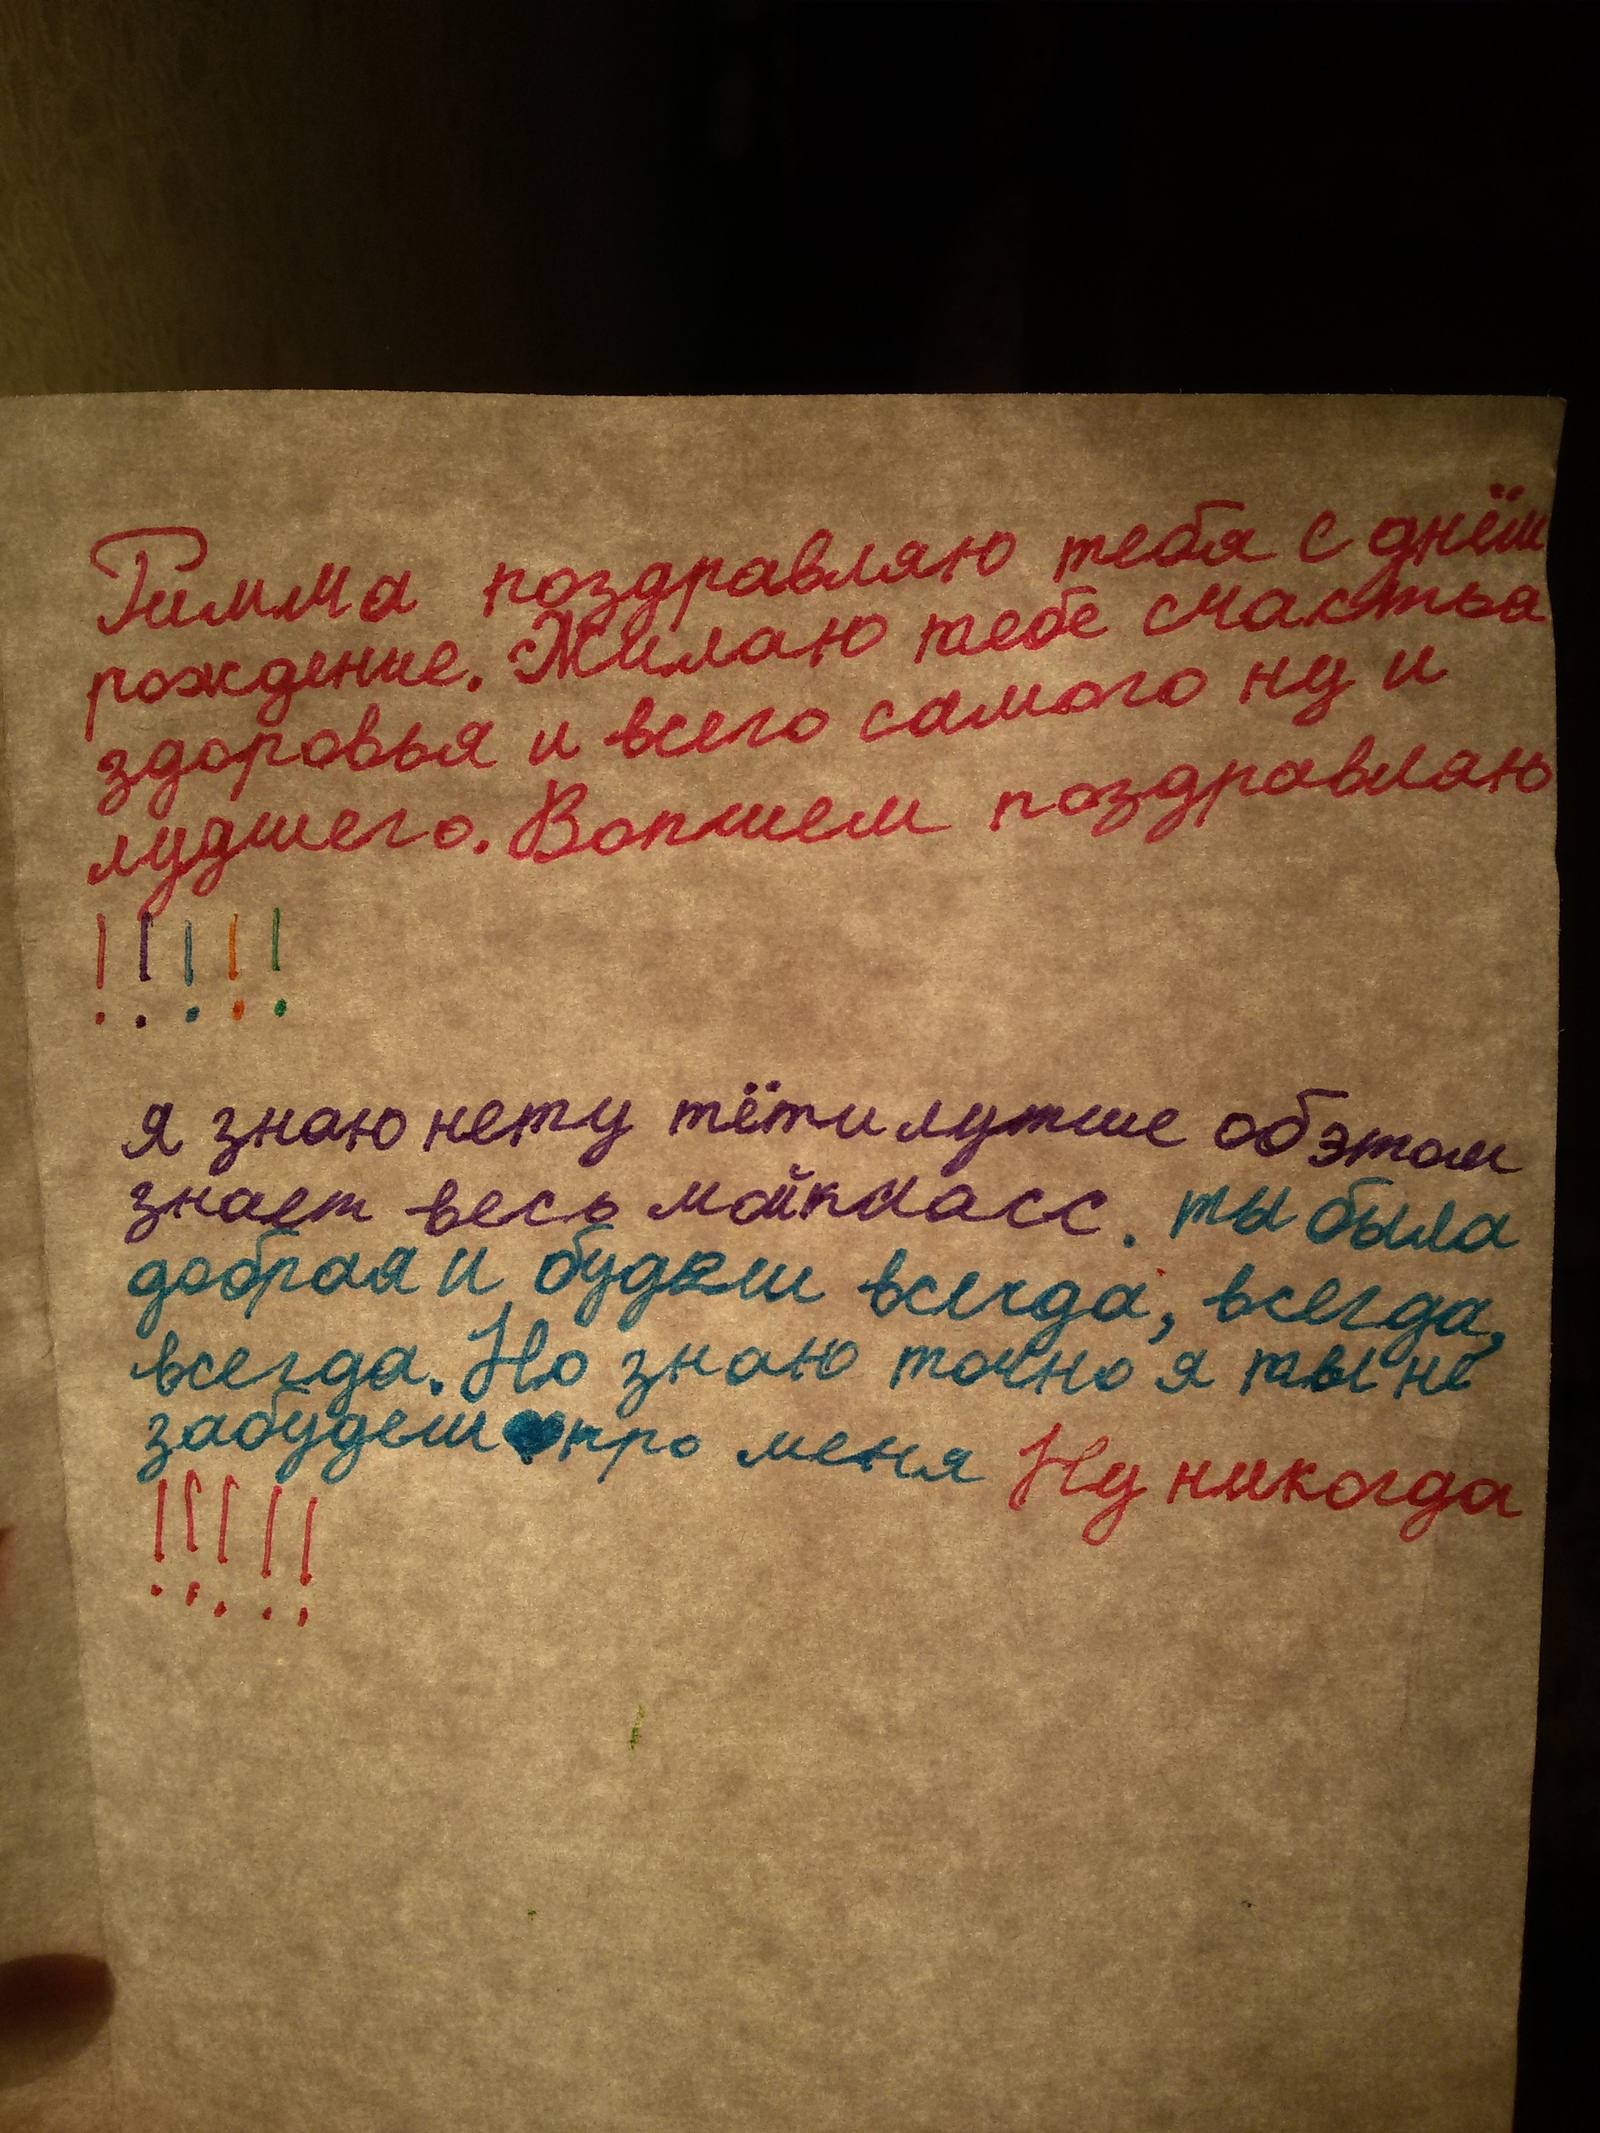 Римма поздравляю тебя с днём
рождение. Жилаю тебе счастья
здоровья и всего самого ну и
лудшего. Вопшем поздравляю
!!!!!
я знаю нету тёти лутше об этом
знает весь мой класс. ты была
добрая и будеш всегда, всегда,
всегда. Но знаю точно я ты не
забудеш про меня Ну никогда
!!!!!